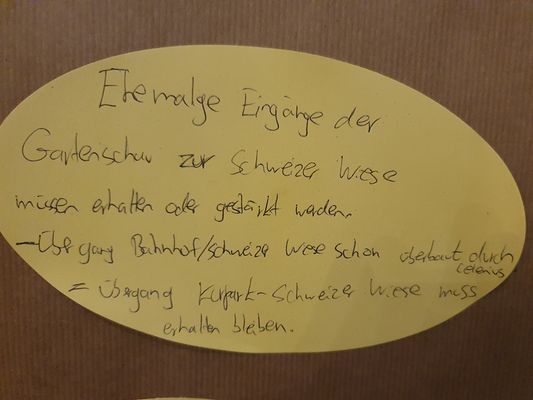 Ehemalge Eingänge der
Gartenschau zur Schweizer Wiese
müssen erhalten oder gestärkt werden.
- Übergang Bahnhof/Schweizer Wiese schon überbaut durch
Celenus
= Übergang Kurpark-Schweizer Wiese muss
erhalten bleiben.